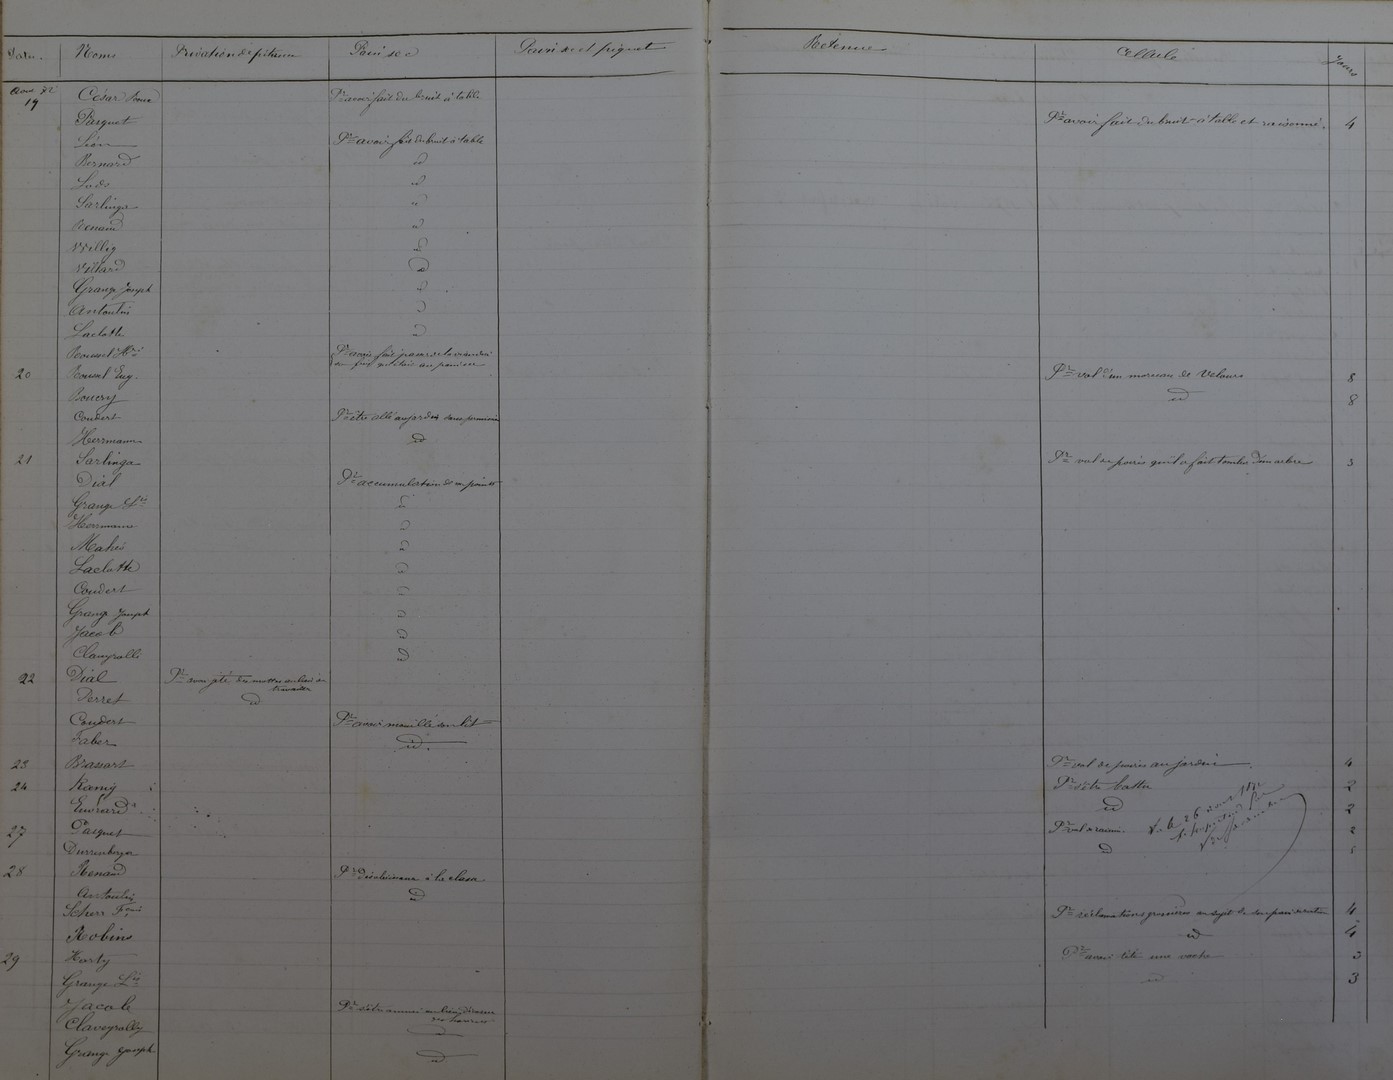 Date. Noms Privation de pitance Pain sec Pain sec et piquet Retenue Cellule Jours
Aout 72
19 César Pr avoir fait du bruit à table
Pasquet Pr avoir fait du bruit à table et raisonné. 4
Léon Pr avoir fait du bruit à table
Bernard id
Lods id
Sarlinga id
Renaud id
Willig id
Villard id
Grange Joseph id
Antoulin id
Laclotte id
Roussel Pr avoir fait passer
20 Roussel Eug. Pr vol d'un morceau de Velours 8
Bouery id 8
Coudert Pr être allé au jardin sans permission
Herrmann id
21 Sarlinga Pr vol de poires qu'il a fait tomber d'un arbre 3
Dial Pr accumulation de points
Grange Ls id
Herrmann id
Mahé id
Laclotte id
Coudert id
Grange Joseph id
Jacob id
Claveyrolle id
22 Dial Pr avoir jeté des mottes au lieu de
travailler
Perret id
Coudert Pr avoir mouillé son lit
Faber id.
23 Brassart Pr vol de poires au jardin. 4
24 Kœnig Pr s'être battu 2
Euvrard id 2
Vu le 26 aout 1872
27 Pasquet Pr vol raisin 2
Durrenberger id
28 Renaud Pr désobéissance à la classe
Antoulin id
Scherr Fçois Pr réclamations grossières au sujet de son pain 4
Robins id 4
29 Harty Pr avoir une veste 3
Grange Ls id 3
Jacob Pr s'être amusé au lieu
Claveyrolle id
Grange Joseph id